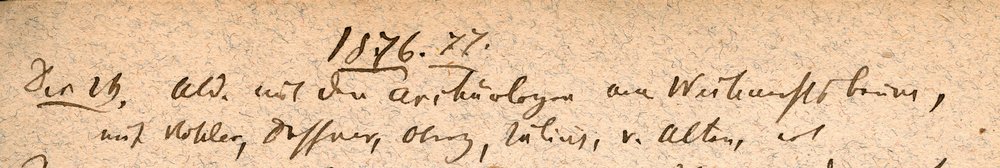 1876.77.
Dez 24. Abd. mit den Archäologen am Weihnachtsbaum,
mit Köhler, Deffner, Julius, v. Alten,